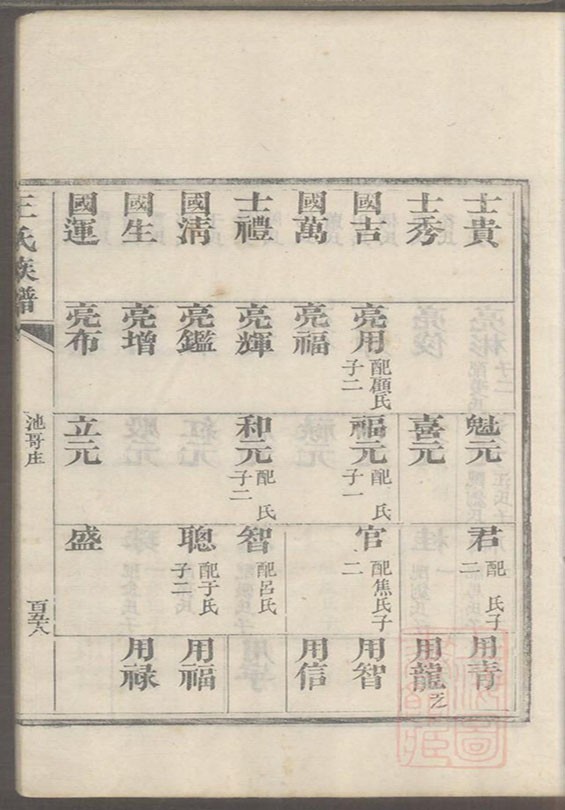 士貴
士秀
國吉
國萬
士禮
國清
國生
國運
亮用 配顧氏 子二
亮福
亮輝
亮鑑
亮增
亮布
魁元
喜元
福元 配 氏 子一
和元 配 氏 子二
立元
君 配 氏子 二
官 配焦氏子 二
智 配呂氏
聰 配于氏 子二
盛
用青
用龍
用智
用信
用福
用祿
王氏族譜
池哥庄
百五八